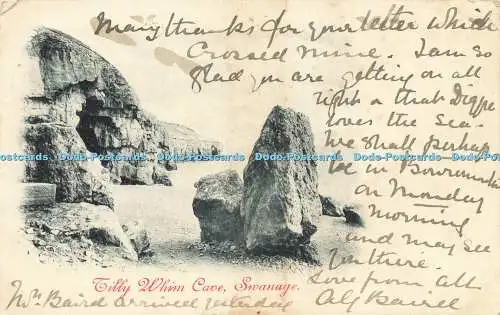 Many thanks for your letter which
crossed mine. I am so
glad you are getting on all
right & that
loves the Sea.
We shall perhap
be in Bournemouth
on Monday
morning
and may see
you there.
Love from all
Baird
Tilly Whim Cave, Swanage.
Mrs Baird arrived yesterday
Dods-Postcards Dods-Postcards Dods-Postcards Dods-Postcards Dods-Postcards Dods-Postcards